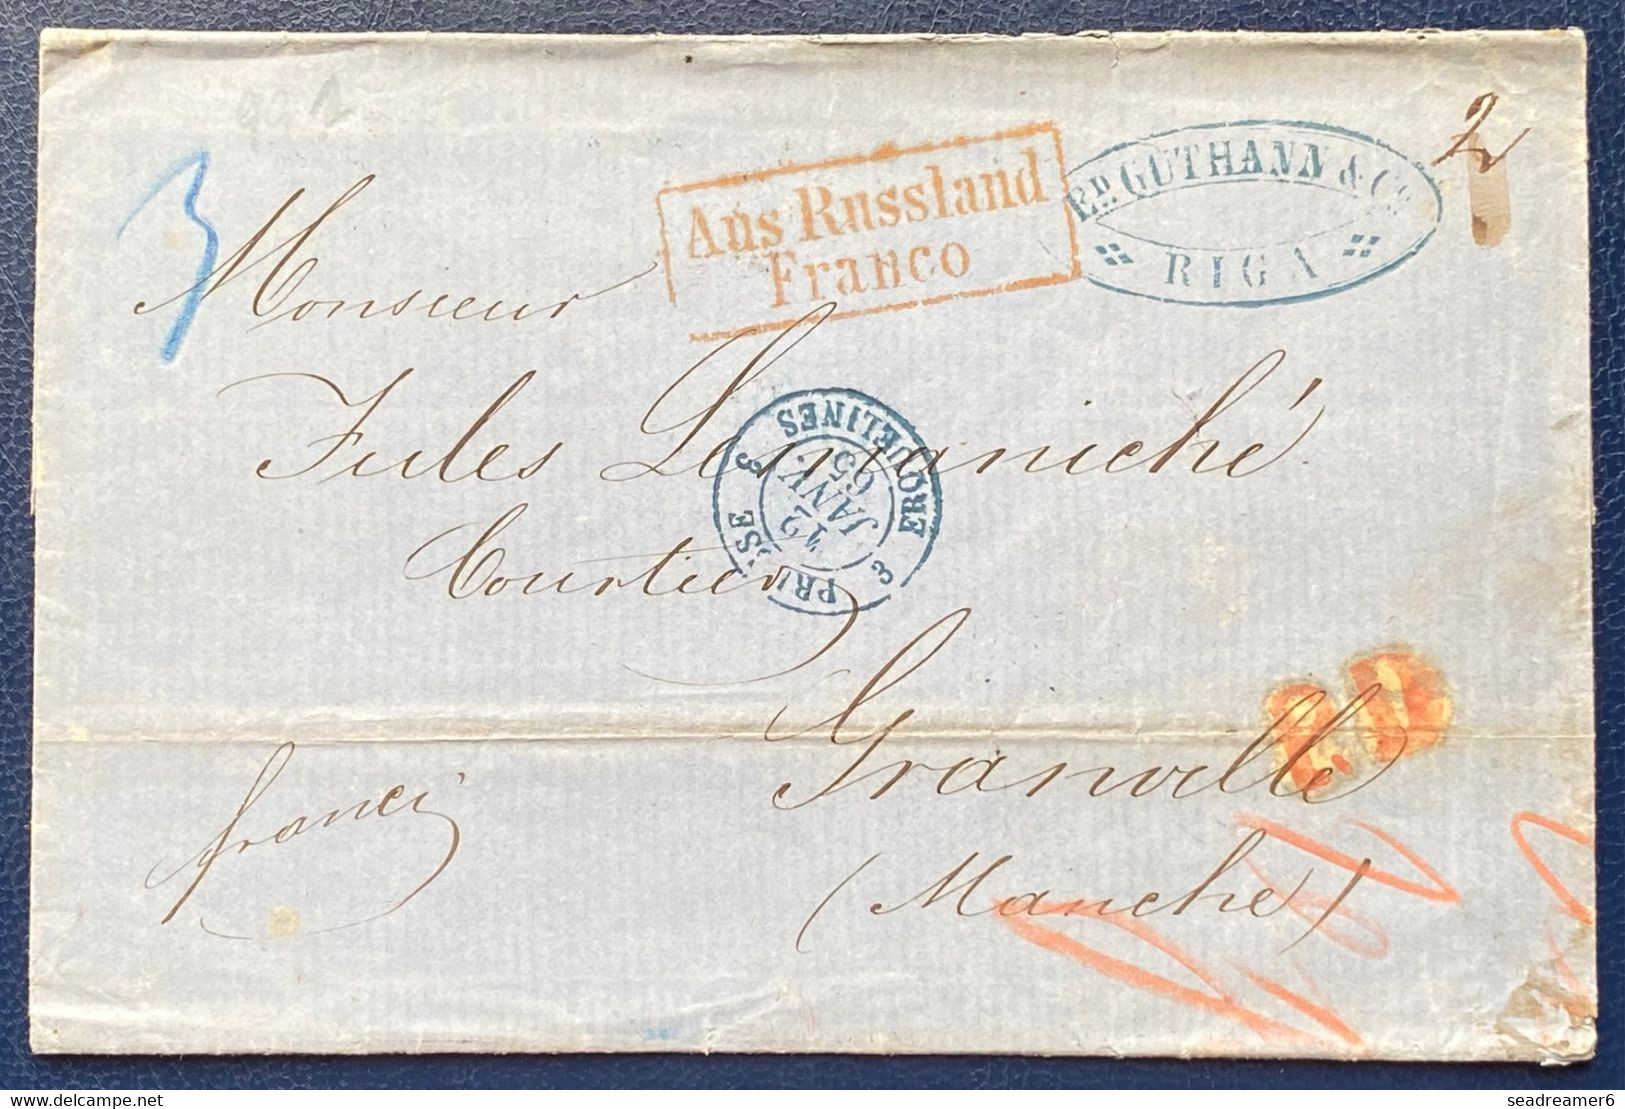 3
2
Aus Russland
Franco
ED. GUTHANN & Co.
RIGA
Monsieur
Jules Lemaniché
PRUSSE 3 ERQUELINES 3
12
JANV.
65
Courtier
Granville
P.D.
franco
(Manche)
delcampe.net
seadreamer6